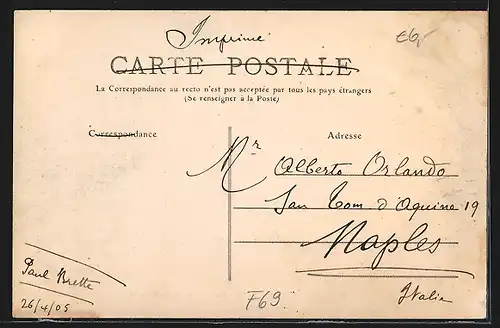 Imprimé
€6,-
CARTE POSTALE
La Correspondance au recto n'est pas acceptée par tous les pays étrangers
(Se renseigner à la Poste)
Correspondance
Adresse
Mr Alberto Orlando
San Tom. d'Aquino 19
Naples
Italia
Paul
26/4/05
F69.